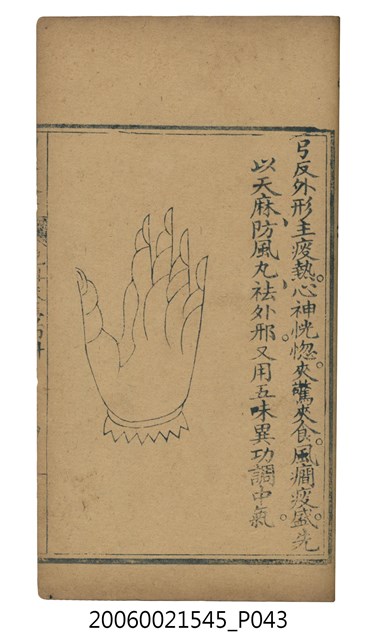 弓反外形主痰熱。心神恍惚。夾驚夾食。風癇痰盛。先
以天麻防風丸、祛外邪。又用五味異功調中氣。
20060021545_P043